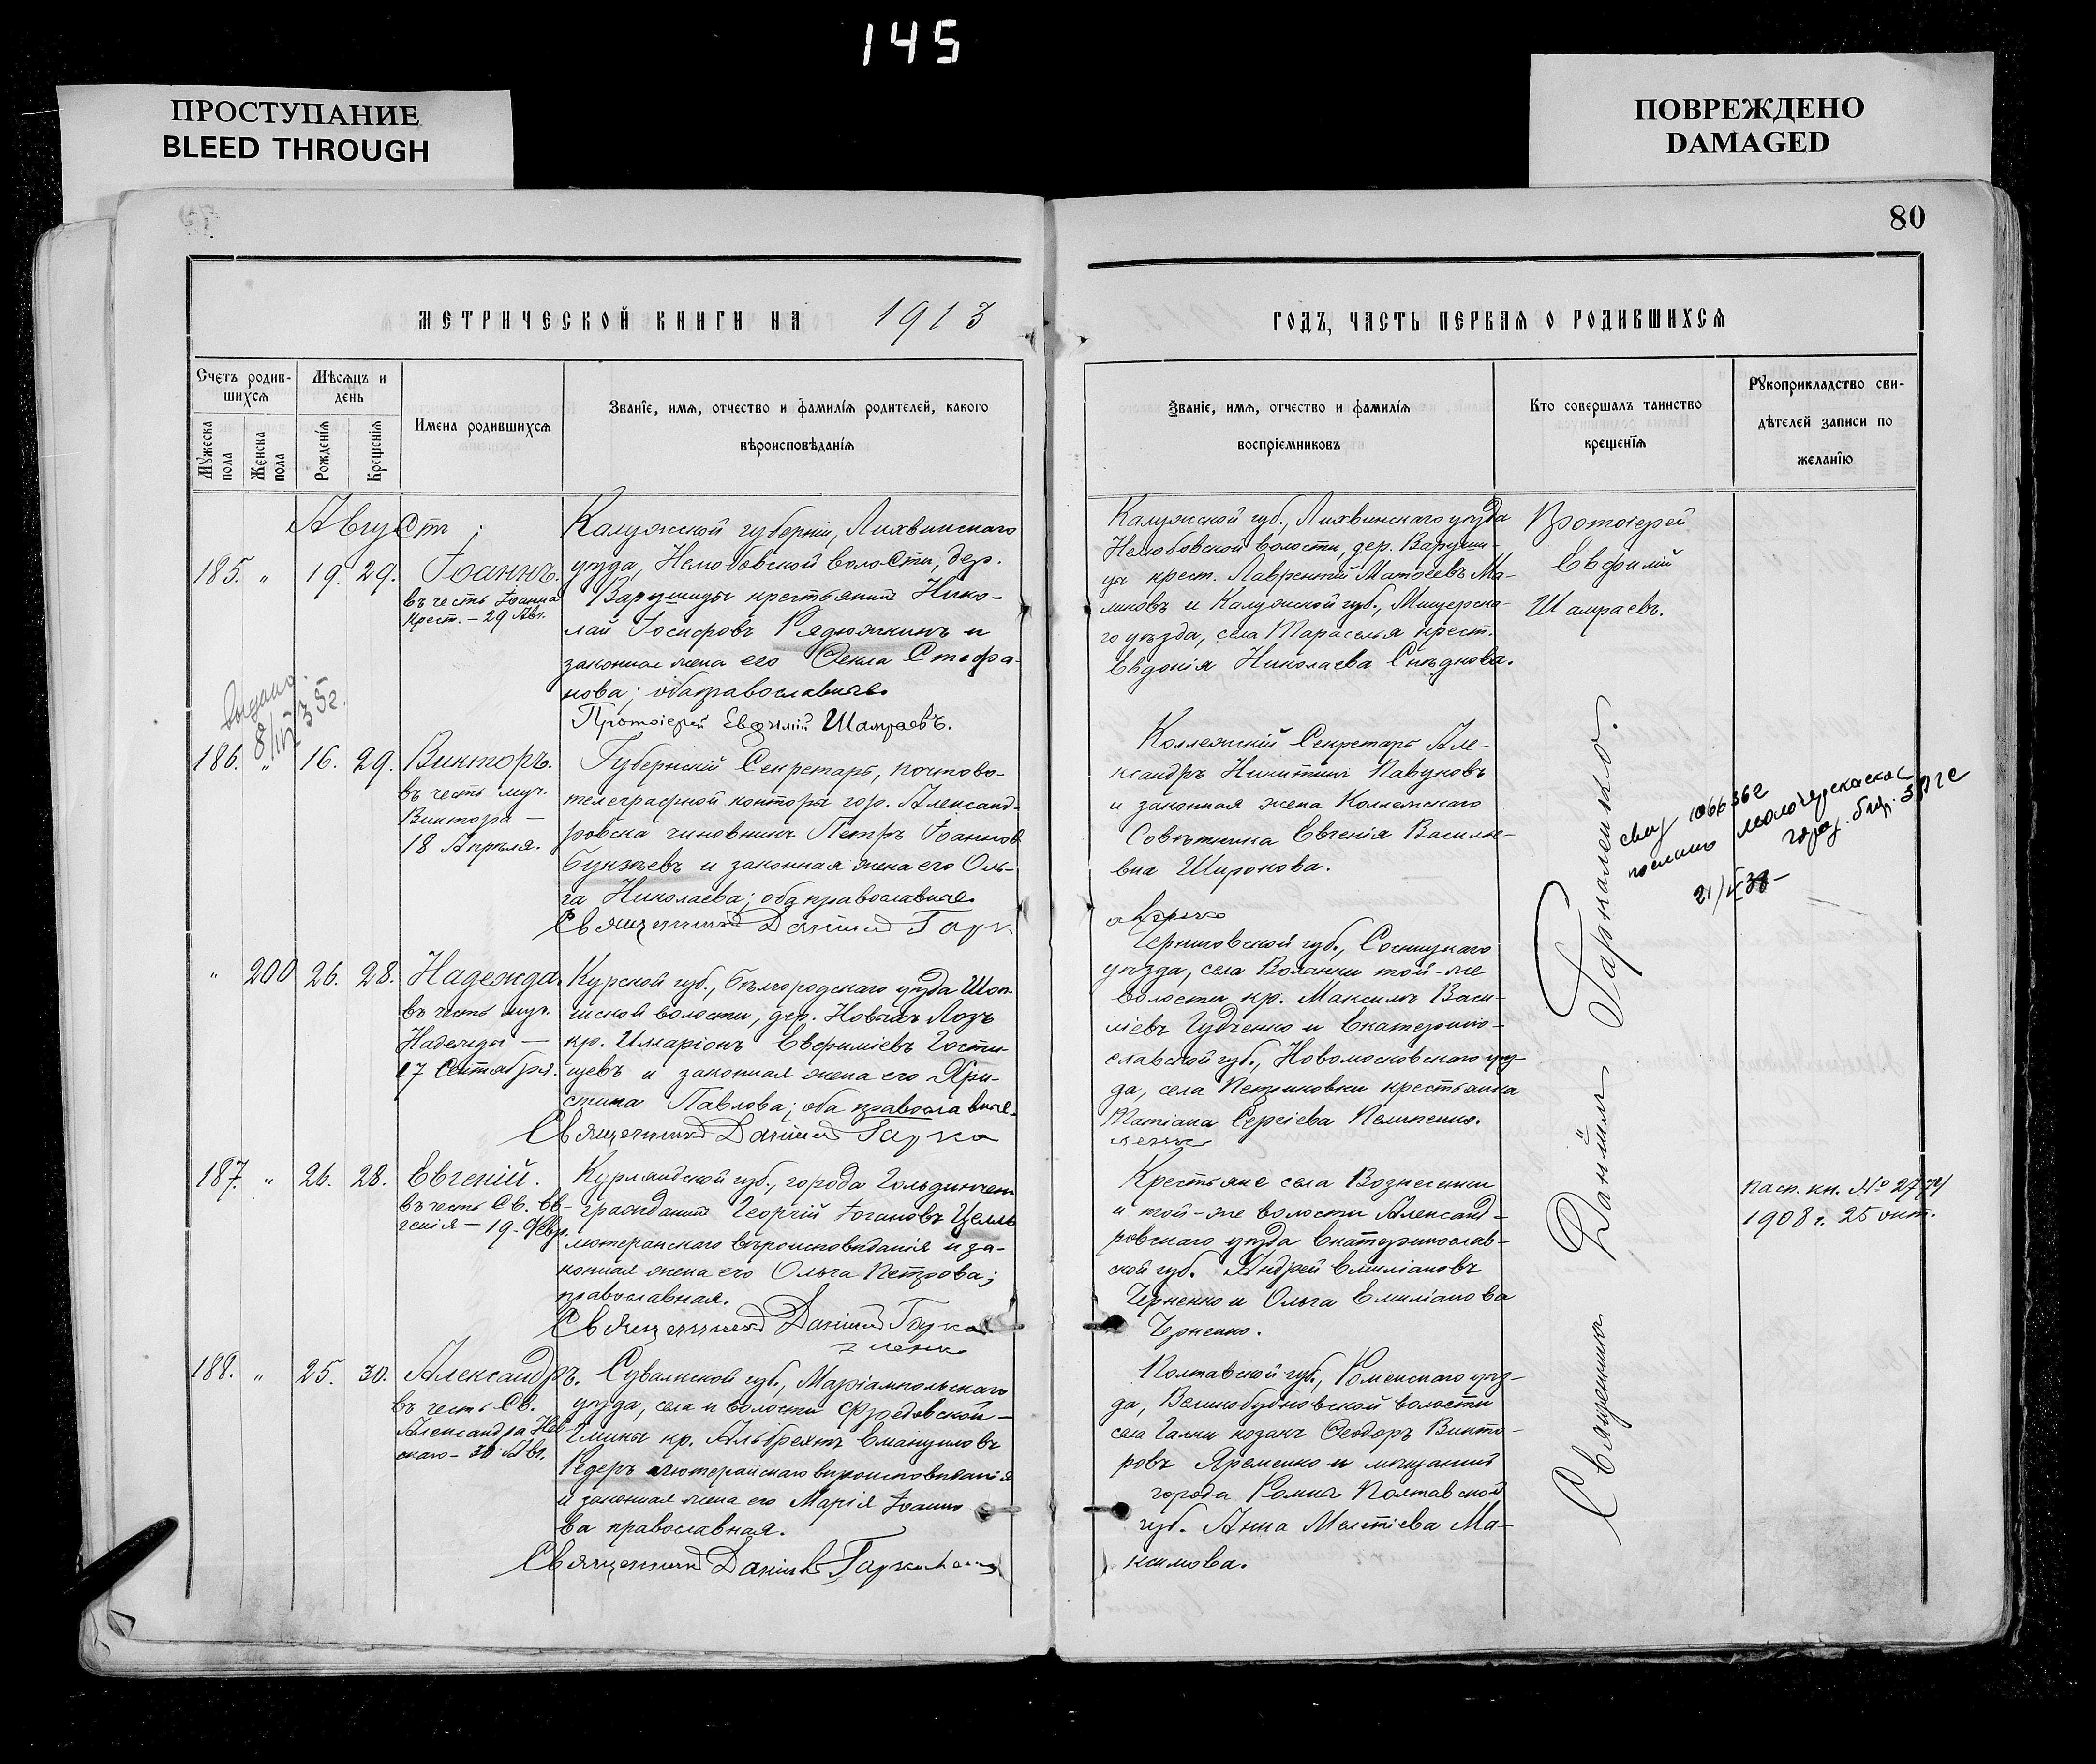 145
ПРОСТУПАНИЕ
BLEED THROUGH
ПОВРЕЖДЕНО
DAMAGED
80
МЕТРИЧЕСКОЙ КНИГИ НА 1913
ГОДЪ, ЧАСТЬ ПЕРВАЯ О РОДИВШИХСЯ
Счетъ родив-
шихся
Мѣсяцъ и
день
Мужеска
пола
Женска
пола
Рожденія
Крещенія
Имена родившихся
Званіе, имя, отчество и фамилія родителей, какого
вѣроисповѣданія
Званіе, имя, отчество и фамилія
воспріемниковъ
Кто совершалъ таинство
крещенія
Рукоприкладство сви-
дѣтелей записи по
желанію
Августъ
185. " 19. 29.
Іоаннъ.
въ честь Іоанна
Крест. – 29 Авг.
Калужской губерніи, Лихвинскаго
уѣзда, Нелюбовской волости, дер.
Варушицы крестьянинъ Нико-
лай Іосифовъ Рядюжкинъ и
законная жена его Ѳекла Стефа-
нова; оба православные.
Протоіерей Евфимій Шамраевъ.
Калужской губ., Лихвинскаго уѣзда
Нелюбовской волости, дер. Варуши-
цы крест. Лаврентій Матѳеевъ Ма-
ликовъ и Калужской губ., Мищерска-
го уѣзда, села Тараселья крест.
Евдокія Николаева Снѣдкова.
Протоіерей
Евфимій
Шамраевъ.
выдано
8/III 35г.
186. " 16. 29.
Викторъ.
въ честь муч.
Виктора –
18 Апрѣля.
Губернскій Секретарь, почтово-
телеграфной конторы гор. Александ-
ровска чиновникъ Петръ Іоанновъ
Бунзѣевъ и законная жена его Оль-
га Николаева; оба православные.
Священникъ Даніилъ Гарк
Коллежскій Секретарь Але-
ксандръ Никитинъ Павуковъ
и законная жена Коллежскаго
Совѣтника Евгенія Василь-
вна Широкова.
свид 1066362
послано
гор.
21/V 38–
" 200 26. 28.
Надежда.
въ честь муч.
Надежды –
17 Сентября.
Курской губ., Бѣлгородскаго уѣзда Шоп-
инской волости, дер. Новыхъ Лозъ
кр. Илларіонъ Евфиміевъ Гости-
щевъ и законная жена его Хри-
стина Павлова; оба православные.
Священникъ Даніилъ Гарка
Черниговской губ., Сосницкаго
уѣзда, села Волынки той-же
волости кр. Максимъ Васи-
ліевъ Гудченко и Екатерино-
славской губ., Новомосковскаго уѣз-
да, села Петриковки крестьянка
Татіана Сергіева Пелипенко.
ленко
187. " 26. 28.
Евгеній.
въ честь Св. Ев-
генія – 19. Февр.
Курляндской губ., города Гольдингена
гражданинъ Георгій Іогановъ Целль
лютеранскаго вѣроисповѣданія и за-
конная жена его Ольга Петрова;
православная.
Священникъ Даніилъ Гарка
ленко
Крестьяне села Вознесенки
и той-же волости Александ-
ровскаго уѣзда Екатеринослав-
ской губ. Андрей Емиліановъ
Черненко и Ольга Емиліанова
Черненко.
Пасп. кн. № 2774
1908 г. 25 окт.
188. " 25. 30.
Александръ.
въ честь Св.
Александра Нев-
скаго – 30 Авг.
Сувалкской губ., Маріампольскаго
уѣзда, села и волости Фредовской –
Гмины кр. Альбрехтъ Емануиловъ
Редеръ лютеранскаго вѣроисповѣданія
и законная жена его Марія Іоанно
ва православная.
Священникъ Даніилъ Гаркаленко
Полтавской губ., Роменскаго уѣз-
да, Великобубновской волости
села Галки козакъ Ѳеодоръ Викто-
ровъ Яременко и мещанинъ
города Ромны Полтавской
губ. Анна Мелетіева Ма-
ксимова.
Священникъ Даніилъ Гаркаленко.